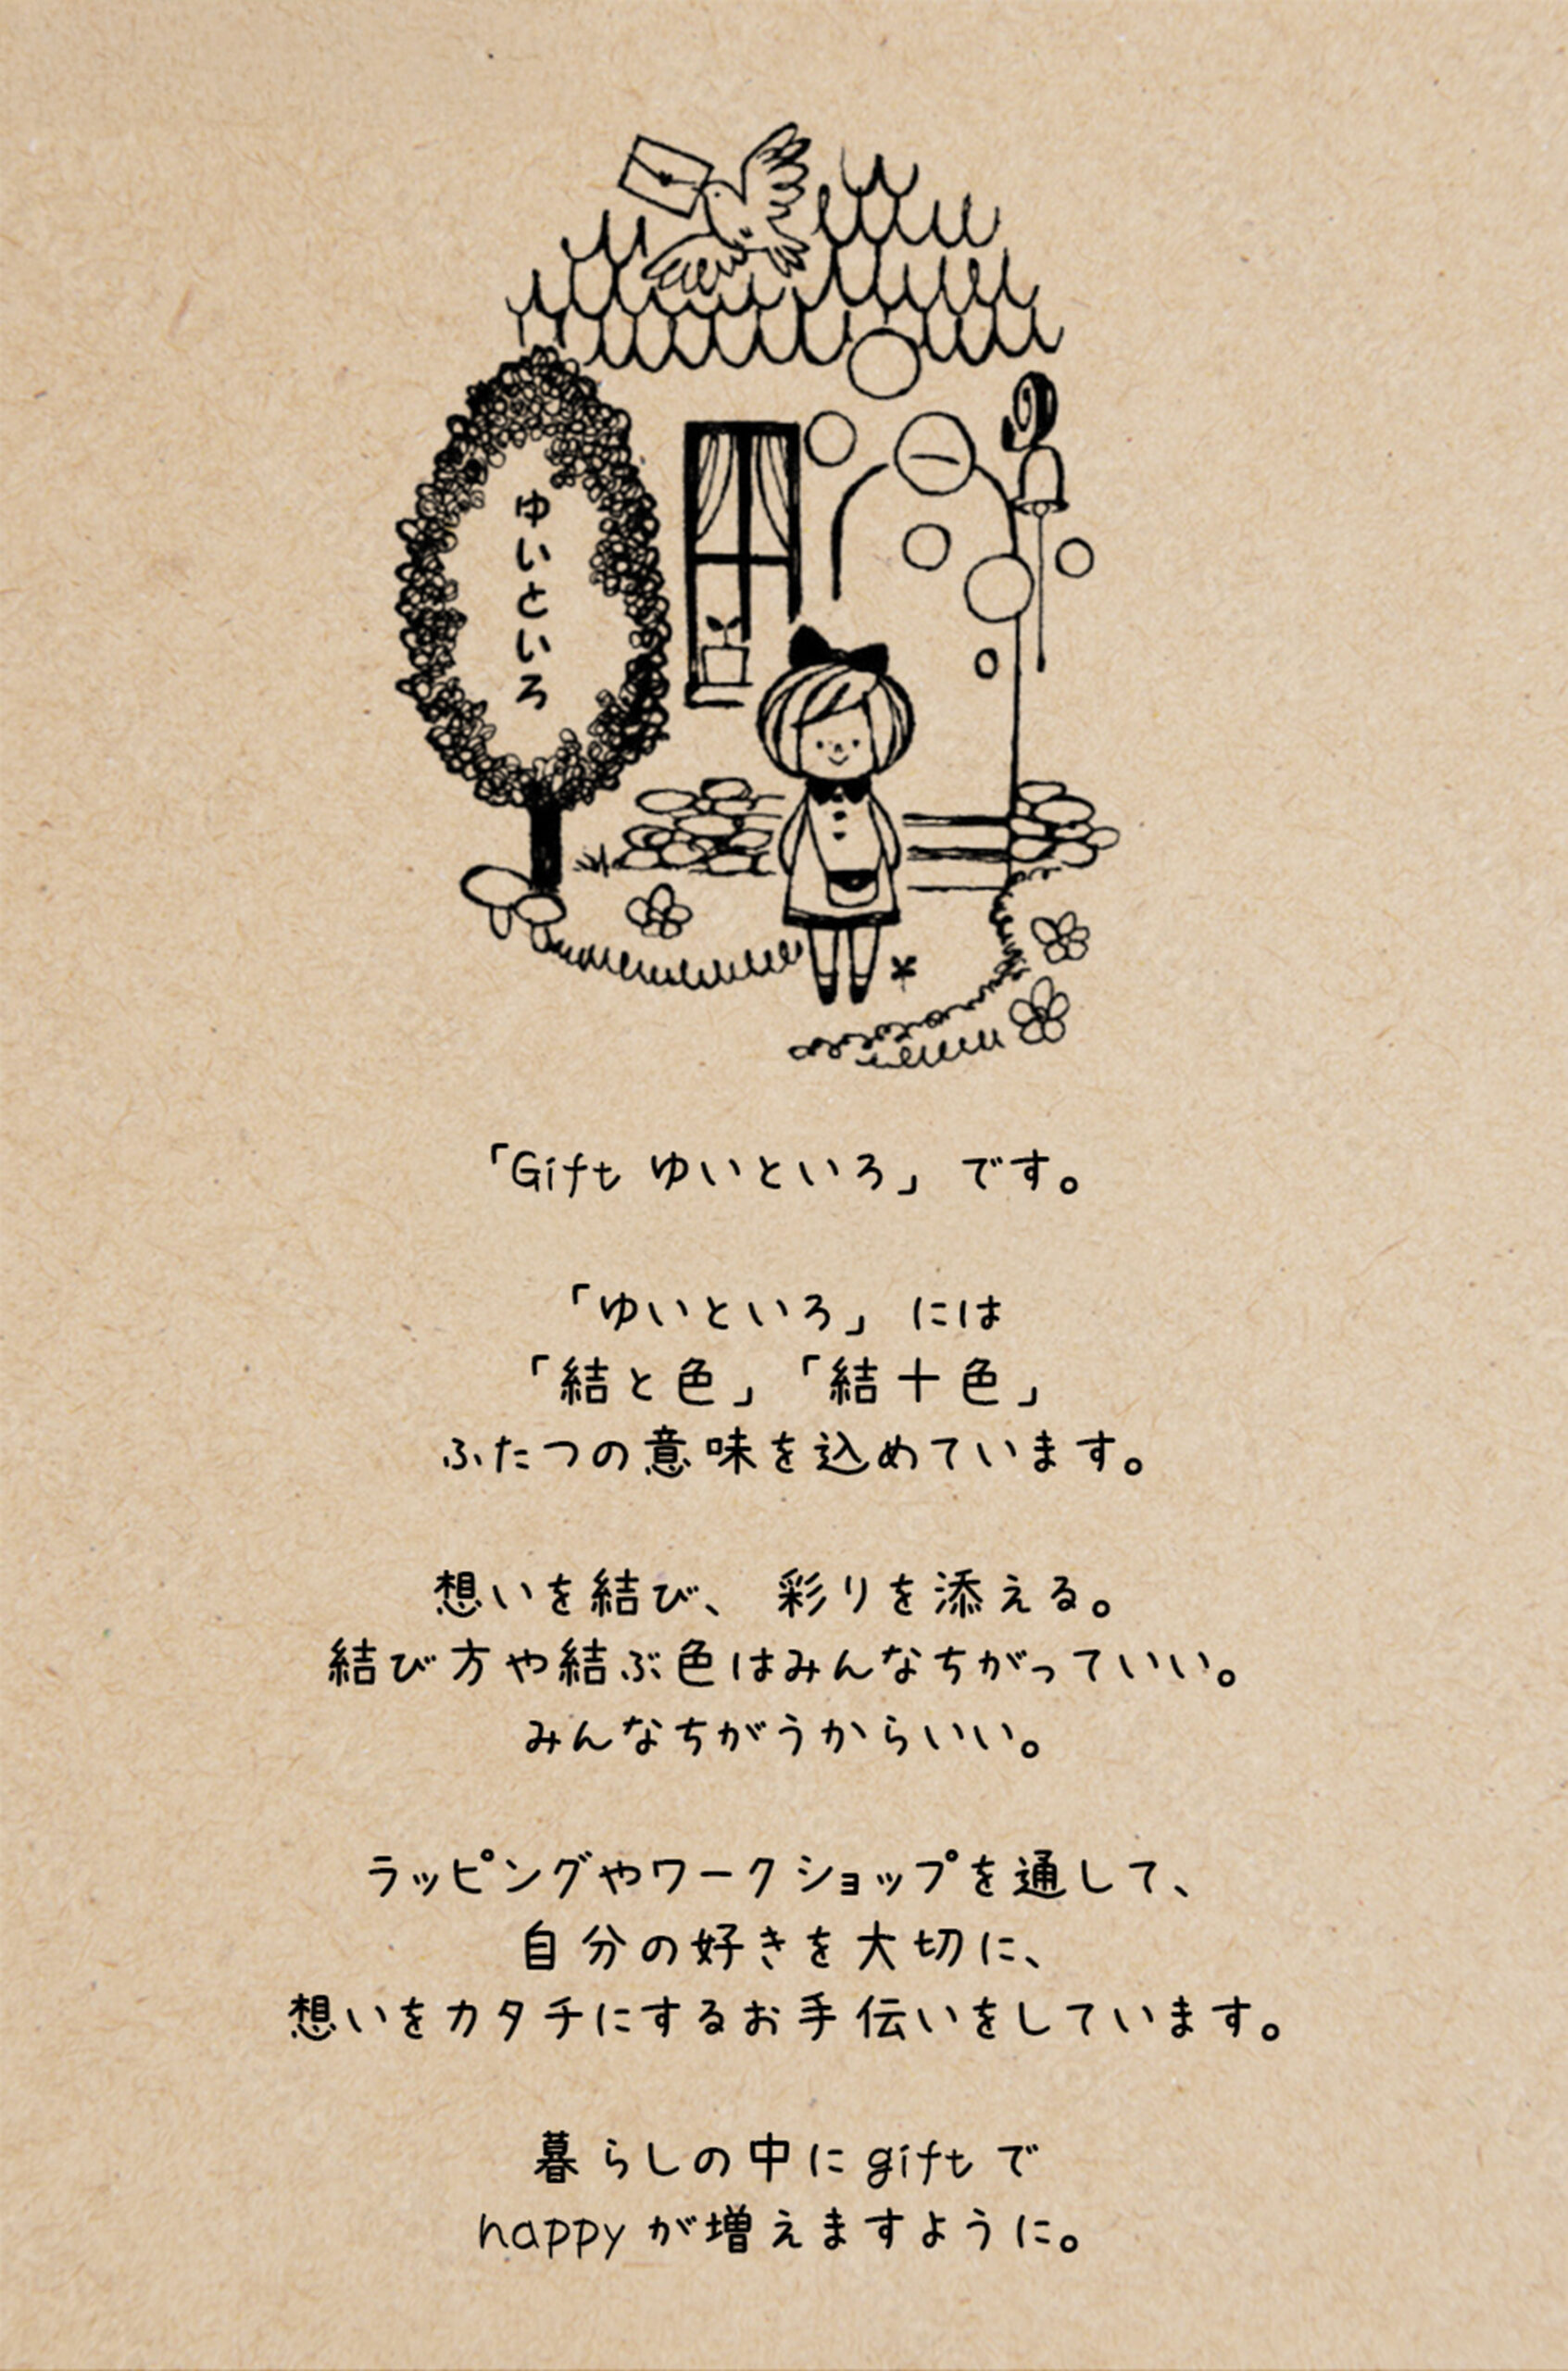 ゆいといろ
「Gift ゆいといろ」です。
「ゆいといろ」には
「結と色」「結十色」
ふたつの意味を込めています。
想いを結び、彩りを添える。
結び方や結ぶ色はみんなちがっていい。
みんなちがうからいい。
ラッピングやワークショップを通して、
自分の好きを大切に、
想いをカタチにするお手伝いをしています。
暮らしの中にgiftで
happyが増えますように。